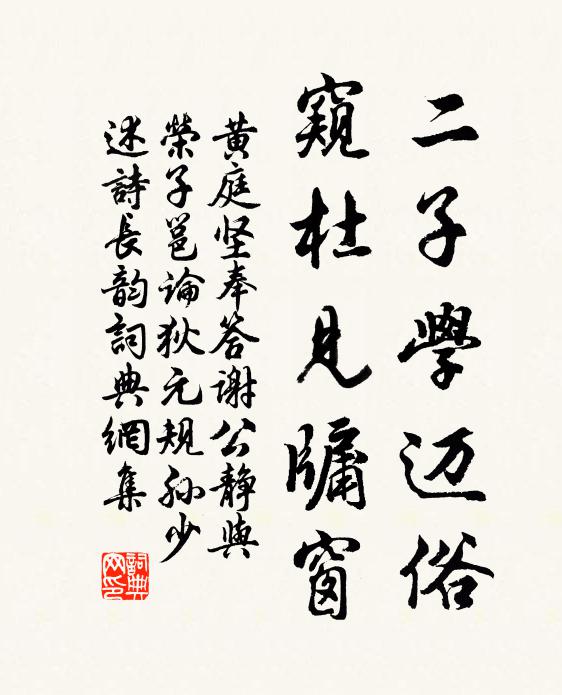 二子學迈俗
窺杜見牖窗
黄庭坚奉答谢公静與
榮子邕論狄元规孫少
述詩長韵詞典網集
詞典網印